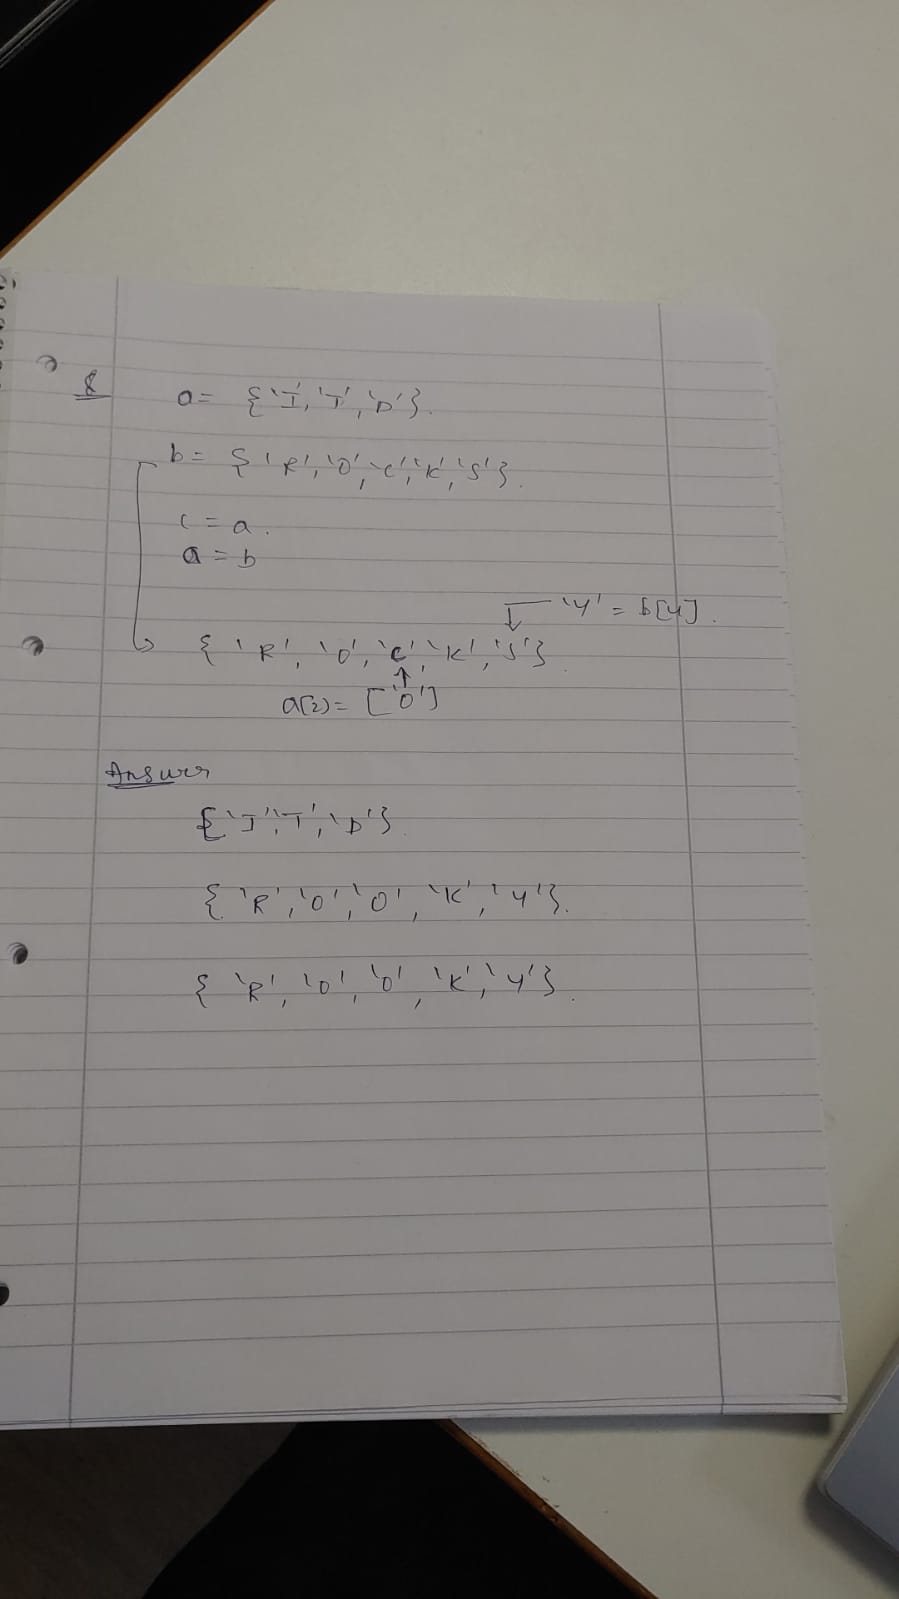 8
a = {'I', 'T', 'D'}.
b = {'R', 'O', 'C', 'K', 'S'}.
c = a.
a = b
'Y' = b[4].
{'R', 'O', 'C', 'K', 'S'}
a[2] = ['O']
Answer
{'I', 'T', 'D'}
{'R', 'O', 'O', 'K', 'Y'}.
{'R', 'O', 'O', 'K', 'Y'}.